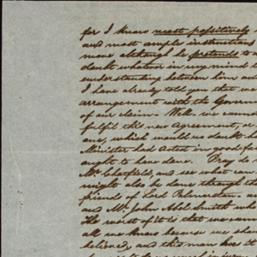 for I know most positively
and most ample instructions
move although he pretends to
doubt whatever in my mind
understanding between him and
I have already told you that we
arrangement with the Govern
of our claim. Well we cannot
fulfil this new Agreement, or
one, which should no doubt
Minister had acted in good fa
ought to have done. Pray do
Mr. Chatfield, and see what can
might also be done through th
friends of Lord Palmerston
and Mr. John Abel Smith who
the worst of it is that we can
all we know because we sha
believed, and this man has it